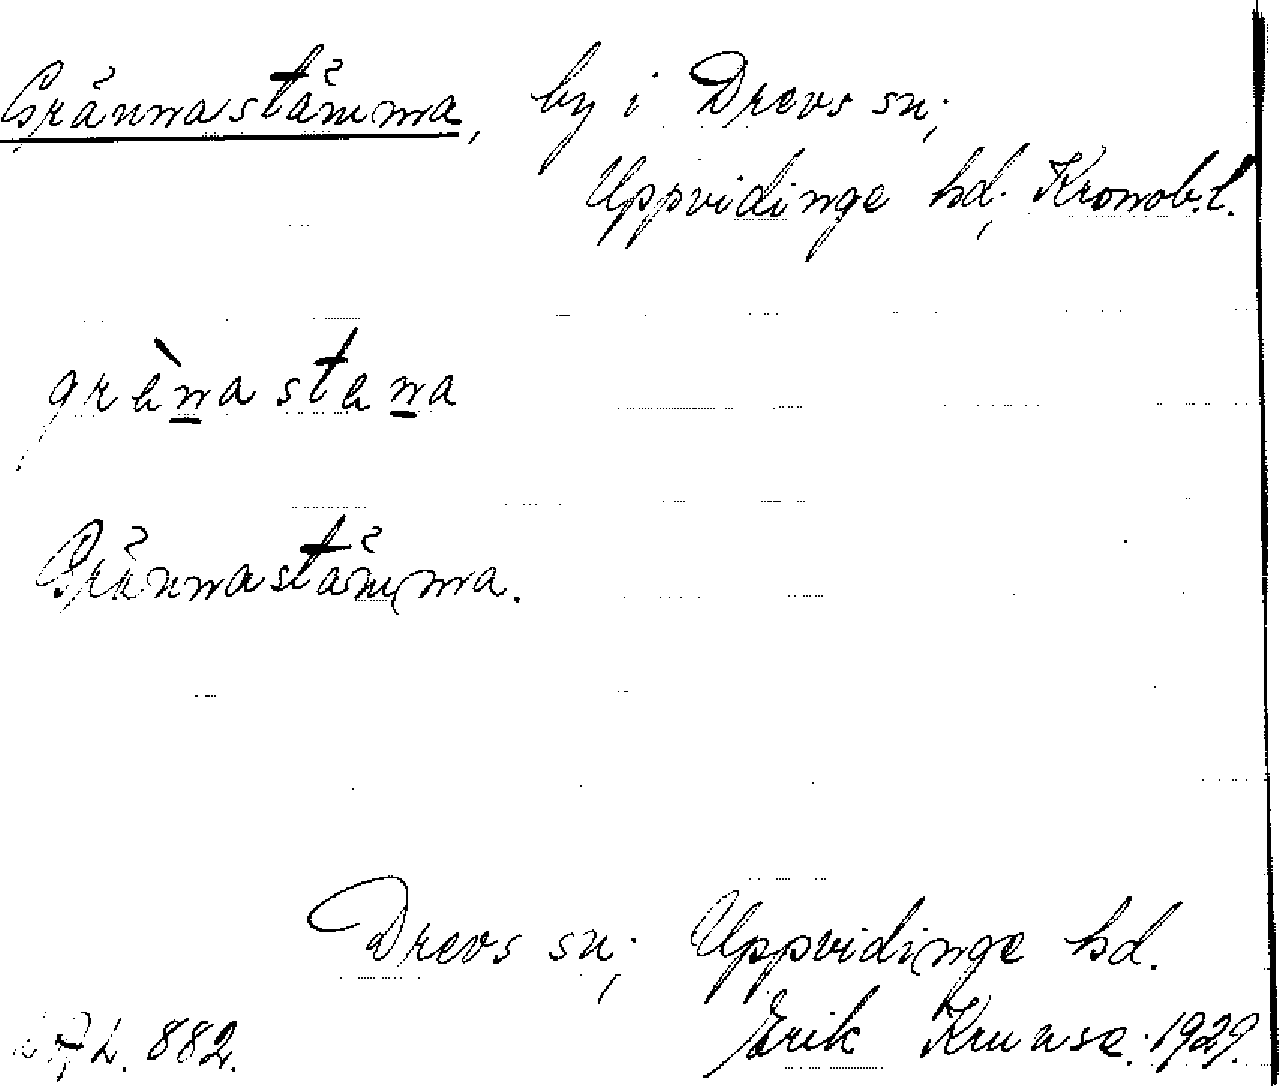 Grännastämma, by i Drevs sn;
Uppvidinge hd; Kronob.l.
grènastena
Grännastämma.
Drevs sn; Uppvidinge hd.
L. 882. Erik Kruuse. 1929.